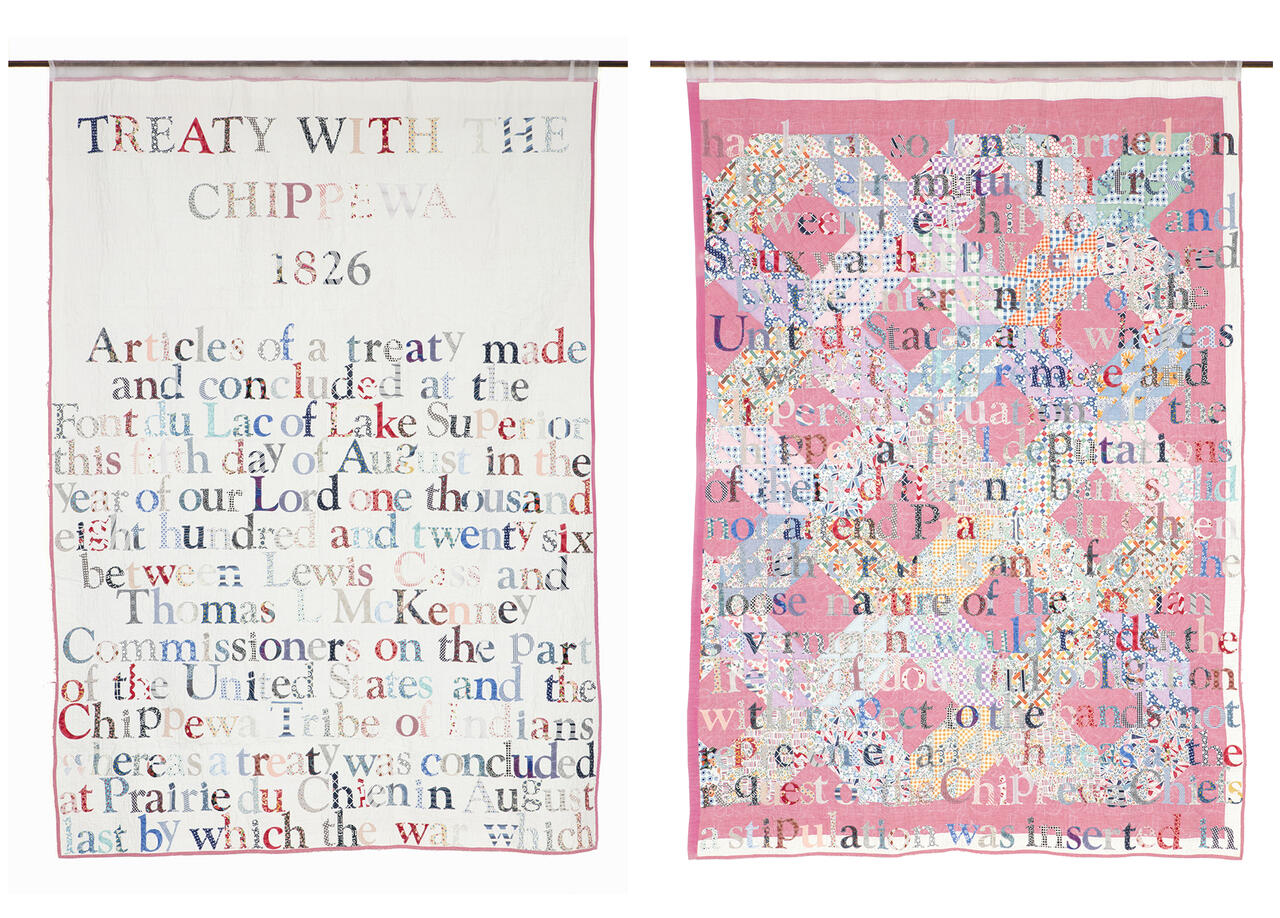 TREATY WITH THE
CHIPPEWA
1826
Articles of a treaty made
and concluded at the
Font du Lac of Lake Superior
this fifth day of August in the
year of our Lord one thousand
eight hundred and twenty six
between Lewis Cass and
Thomas L McKenney
Commissioners on the part
of the United States and the
Chippewa Tribe of Indians
whereas a treaty was concluded
at Prairie du Chien in August
last by which the war which
has been so long carried on
to their mutual distress
between the Chippewas and
Sioux was happily terminated
by the intervention of the
United States and whereas
owing to the remote and
dispersed situation of the
Chippewas full deputations
of their different bands did
not attend Prairie du Chien
which and from the
loose nature of the Indian
government would render the
treaty of doubtful obligation
with respect to the bands not
represented and whereas at the
request of the Chippewa Chiefs
a stipulation was inserted in